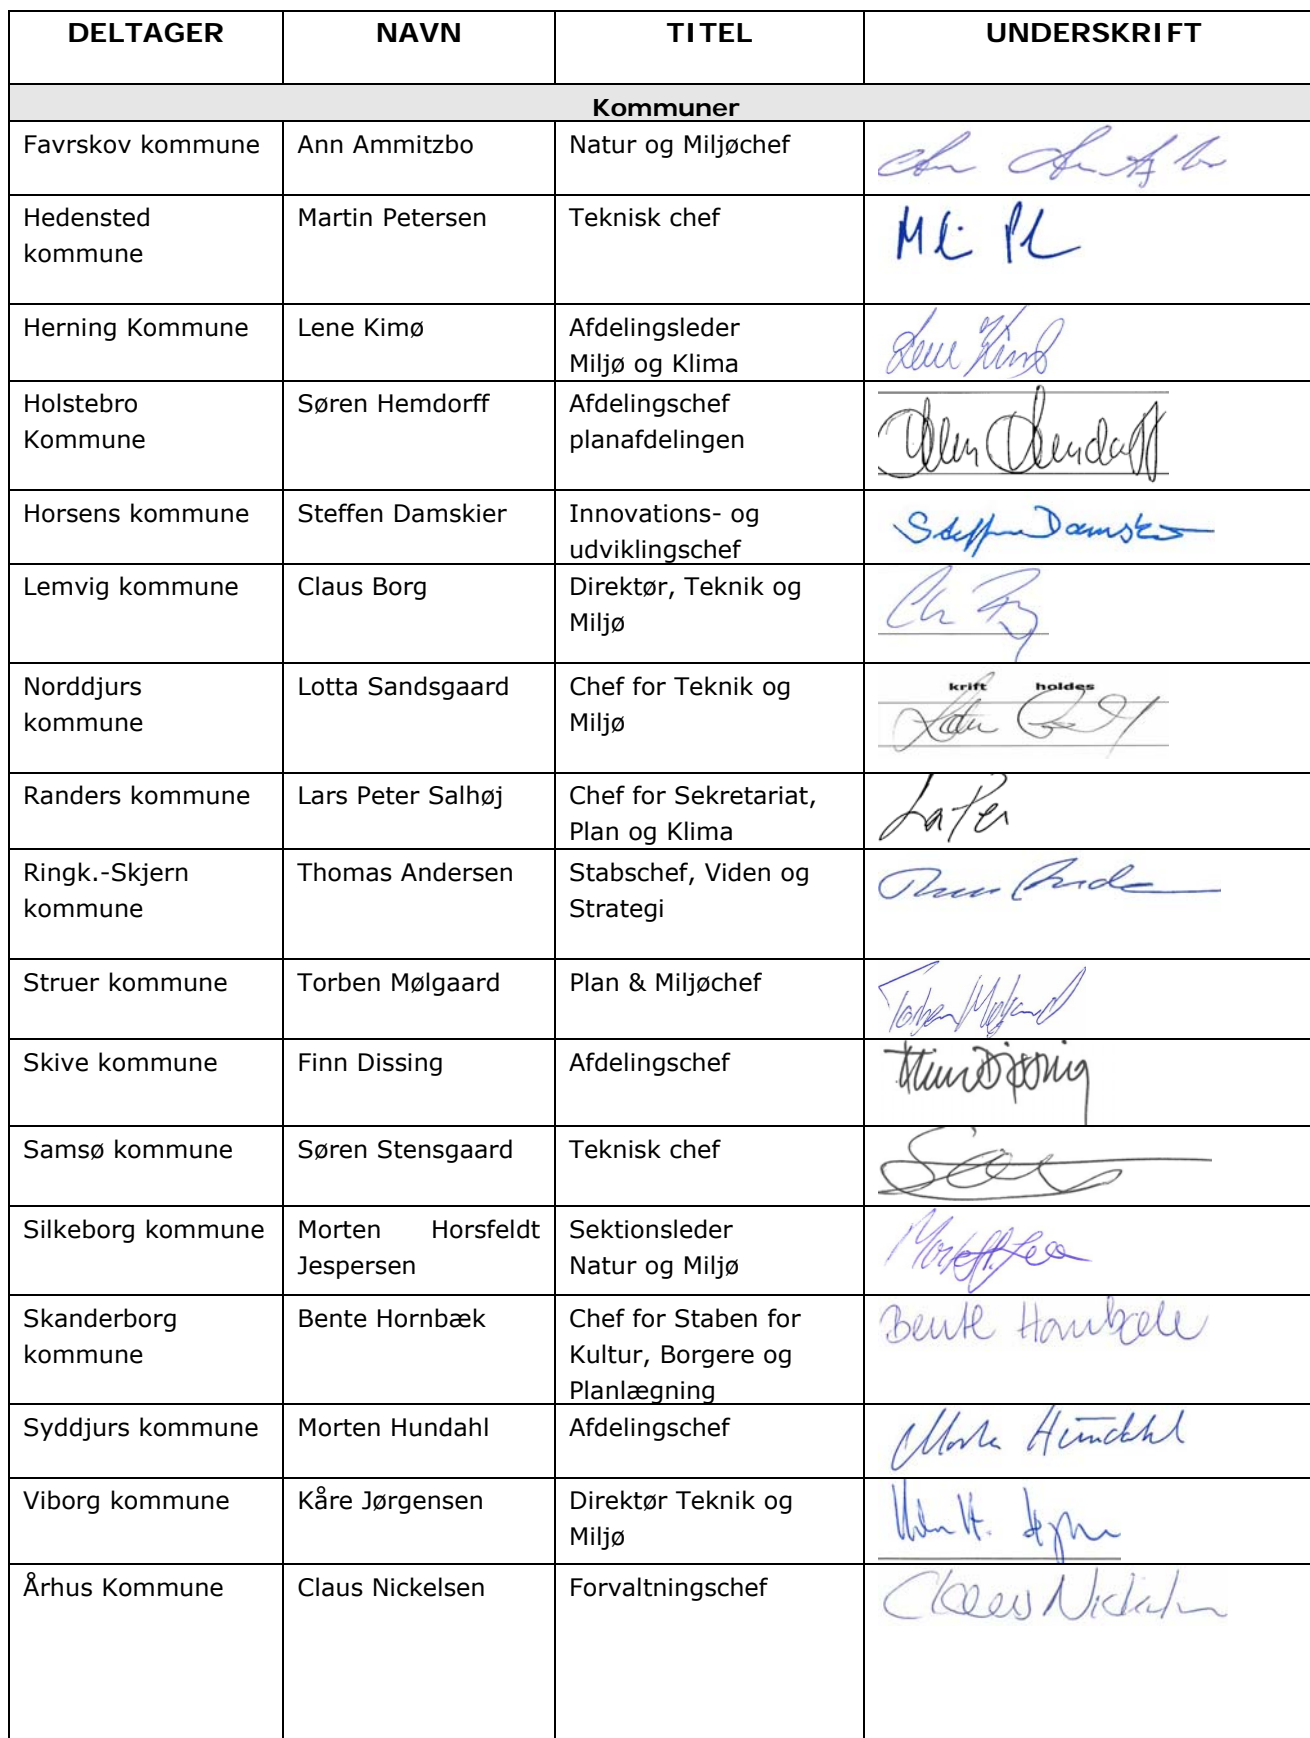 DELTAGER NAVN TITEL UNDERSKRIFT
Kommuner
Favrskov kommune Ann Ammitzbo Natur og Miljøchef
Hedensted Martin Petersen Teknisk chef
kommune
Herning Kommune Lene Kimø Afdelingsleder Lene Kimø
Miljø og Klima
Holstebro Søren Hemdorff Afdelingschef
Kommune planafdelingen
Horsens kommune Steffen Damskier Innovations- og
udviklingschef
Lemvig kommune Claus Borg Direktør, Teknik og
Miljø
krift holdes
Norddjurs Lotta Sandsgaard Chef for Teknik og
kommune Miljø
Randers kommune Lars Peter Salhøj Chef for Sekretariat,
Plan og Klima
Ringk.-Skjern Thomas Andersen Stabschef, Viden og
kommune Strategi
Struer kommune Torben Mølgaard Plan & Miljøchef Torben Mølgaard
Skive kommune Finn Dissing Afdelingschef Finn Dissing
Samsø kommune Søren Stensgaard Teknisk chef
Silkeborg kommune Morten Horsfeldt Sektionsleder
Jespersen Natur og Miljø
Skanderborg Bente Hornbæk Chef for Staben for Bente Hornbæk
kommune Kultur, Borgere og
Planlægning
Syddjurs kommune Morten Hundahl Afdelingschef Morten Hundahl
Viborg kommune Kåre Jørgensen Direktør Teknik og
Miljø
Århus Kommune Claus Nickelsen Forvaltningschef Claus Nickelsen